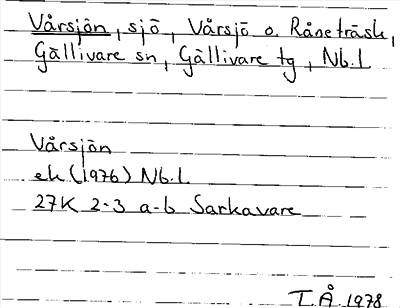 Vårsjön, sjö, Vårsjö o. Råneträsk,
Gällivare sn, Gällivare tg, Nb.l
Vårsjön
ek (1976) Nb.l.
27K 2-3 a-b Sarkavare
T.Å. 1978